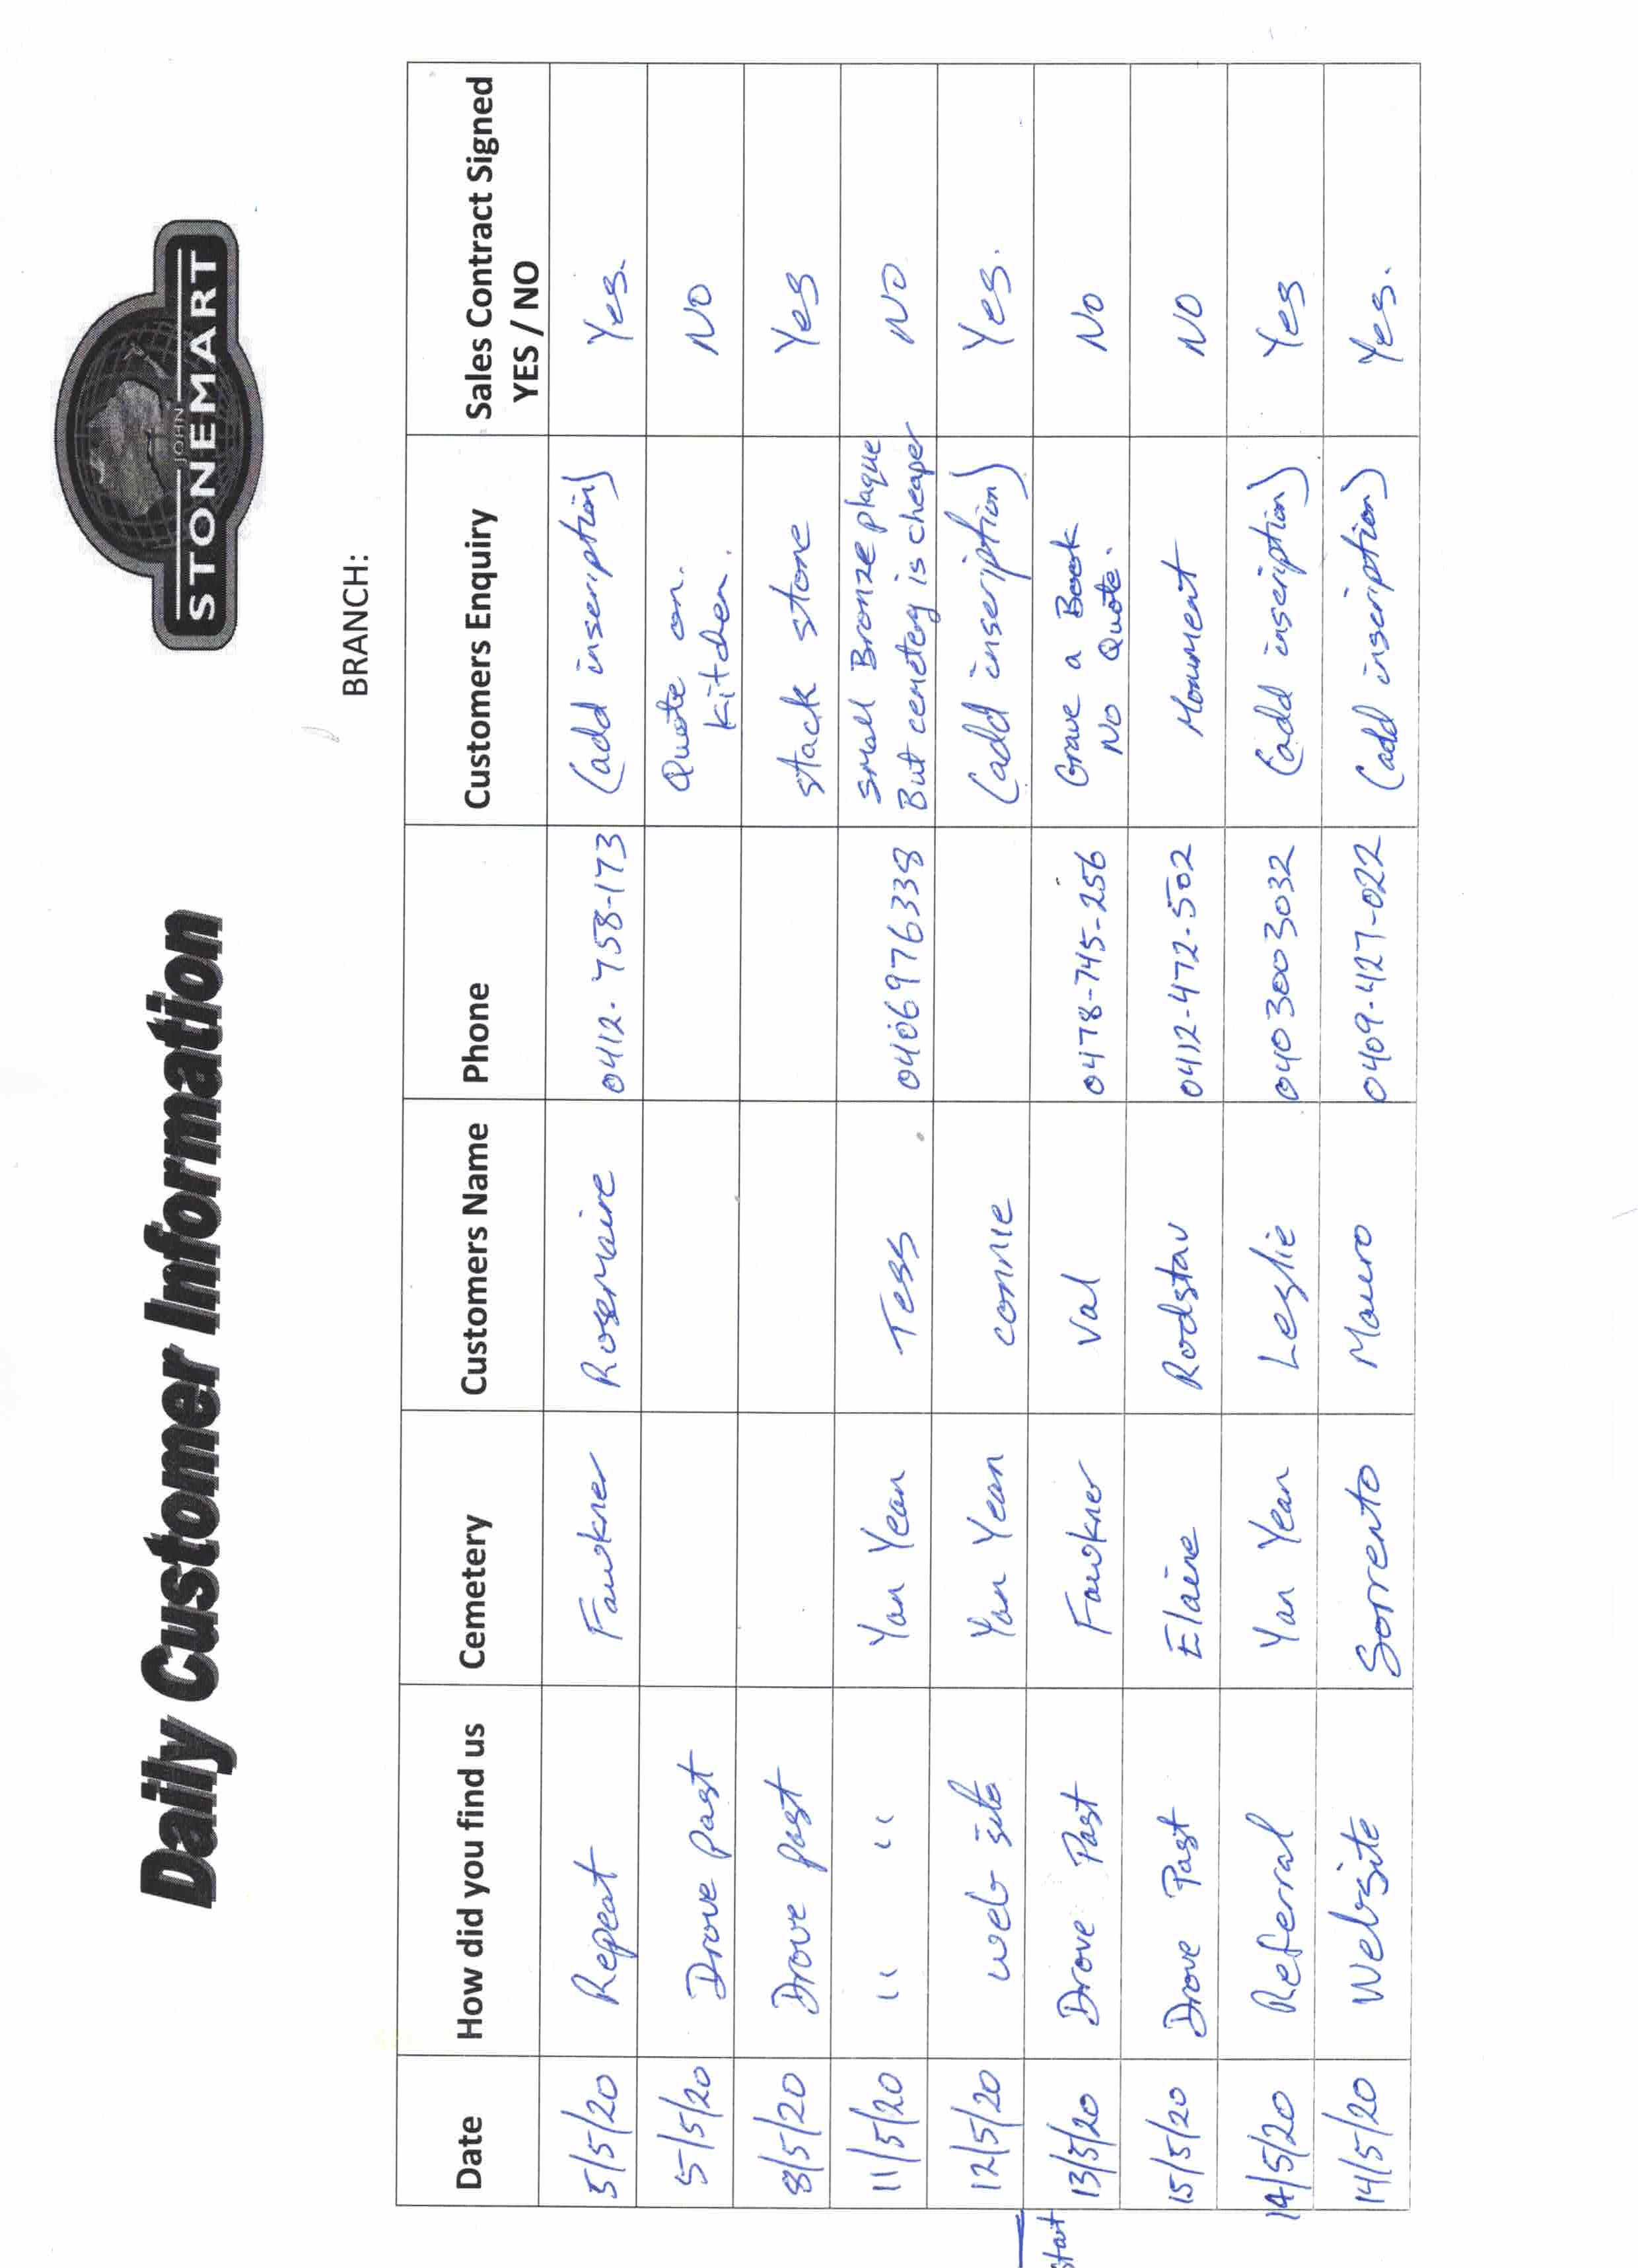 Daily Customer Information
JOHN
STONEMART
BRANCH:
Date How did you find us Cemetery Customers Name Phone Customers Enquiry Sales Contract Signed
YES / NO
5/5/20 Repeat Fawkner Rosemaire 0412-758-173 (add inscription) Yes.
5/5/20 Drove past Quote on. NO
kitchen.
8/5/20 Drove past stack stone Yes
11/5/20 " " Yan Yean Tess 0406976338 small Bronze plaque NO
But cemetery is cheaper
12/5/20 web site Yan Yean connie (add inscription) Yes.
start 13/5/20 Drove Past Fawkner Val 0478-745-256 Grave a Book No
No Quote.
15/5/20 Drove Past Elaine Rodstav 0412-472-502 Monument NO
14/5/20 Referral Yan Yean Leslie 0403003032 (add inscription) Yes
14/5/20 Website Sorrento Mauro 0409-427-022 (add inscription) Yes.